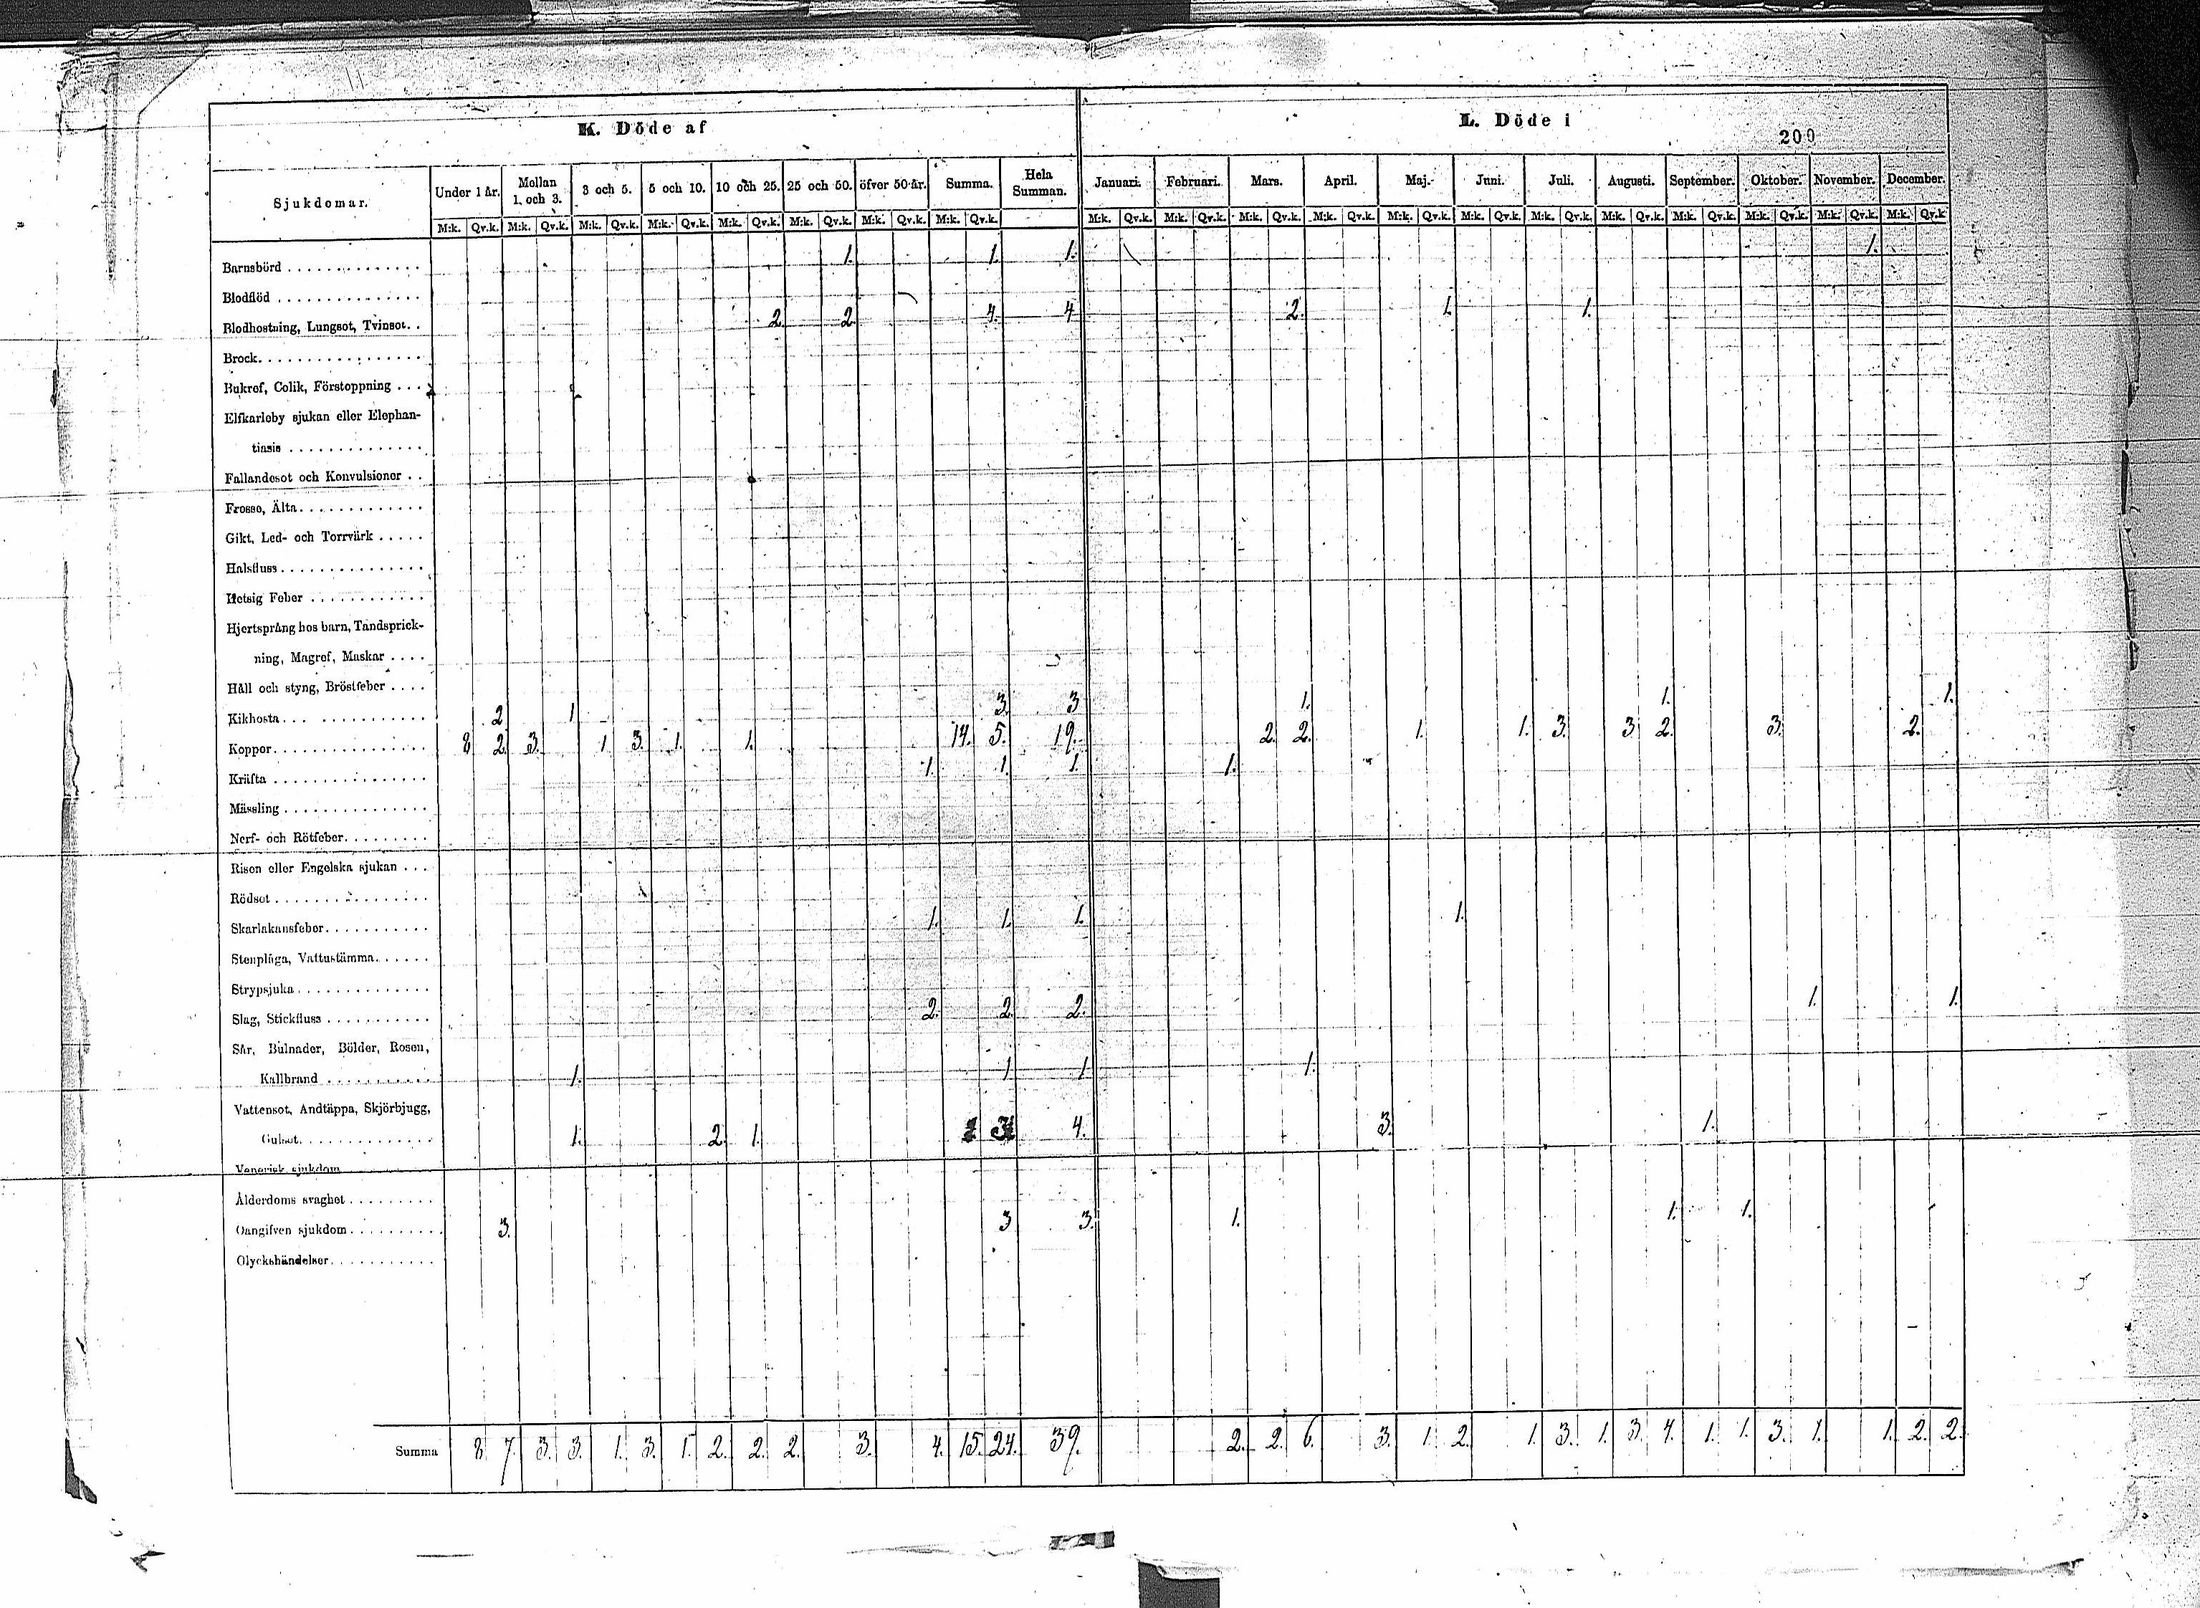 K. Döde af
L. Döde i
200
Sjukdomar. Under 1 år. Mellan 1. och 3. 3 och 5. 5 och 10. 10 och 25. 25 och 50. öfver 50 år. Summa. Hela Summan. Januari. Februari. Mars. April. Maj. Juni. Juli. Augusti. September. Oktober. November. December.
M:k. Qv.k. M:k. Qv.k. M:k. Qv.k. M:k. Qv.k. M:k. Qv.k. M:k. Qv.k. M:k. Qv.k. M:k. Qv.k. M:k. Qv.k. M:k. Qv.k. M:k. Qv.k. M:k. Qv.k. M:k. Qv.k. M:k. Qv.k. M:k. Qv.k. M:k. Qv.k. M:k. Qv.k. M:k. Qv.k. M:k. Qv.k. M:k. Qv.k
Barnsbörd . . . . . . . . . . . . . . 1. 1. 1. 1.
Blodflöd . . . . . . . . . . . . . . .
Blodhostning, Lungsot, Tvinsot. . 2. 2 4. 4 2. 1. 1.
Brock. . . . . . . . . . . . . . . . .
Bukref, Colik, Förstoppning . . .
Elfkarleby sjukan eller Elephan-
tiasis . . . . . . . . . . . . . .
Fallandesot och Konvulsioner . .
Frosso, Älta. . . . . . . . . . . . .
Gikt, Led- och Torrvärk . . . . .
Halsfluss . . . . . . . . . . . . . . .
Hetsig Feber . . . . . . . . . . . .
Hjertsprång hos barn, Tandsprick-
ning, Magref, Maskar . . . .
Håll och styng, Bröstfeber . . . .
Kikhosta . . . . . . . . . . . . . . 2 1 3. 3 1. 1. 1.
Koppor. . . . . . . . . . . . . . . . 8 2 3. 1. 3. 1. 1. 14. 5. 19. 2. 2. 1. 1. 3. 3 2. 3. 2.
Kräfta . . . . . . . . . . . . . . . . 1. 1. 1. 1.
Mässling . . . . . . . . . . . . . . .
Nerf- och Rötfeber. . . . . . . . .
Risen eller Engelska sjukan . . .
Rödsot . . . . . . . . . . . . . . . .
Skarlakansfeber. . . . . . . . . . . 1. 1. 1. 1.
Stenplåga, Vattustämma. . . . . .
Strypsjuka . . . . . . . . . . . . . .
Slag, Stickfluss . . . . . . . . . . . 2. 2. 2. 1. 1.
Sår, Bulnader, Bölder, Rosen,
Kallbrand . . . . . . . . . . . 1. 1 1. 1.
Vattensot, Andtäppa, Skjörbjugg,
Gulsot. . . . . . . . . . . . . . 1. 2. 1. 3 4. 3. 1.
Venerisk sjukdom
Ålderdoms svaghet . . . . . . . . .
Oangifven sjukdom . . . . . . . . . . 3. 3 3. 1. 1. 1.
Olyckshändelser. . . . . . . . . . .
Summa 8 7. 3. 3. 1. 3. 1. 2. 2. 2. 3. 4. 15. 24. 39. 2. 2. 6. 3. 1. 2. 1. 3. 1. 3. 4. 1. 1. 3. 1. 1. 2. 2.